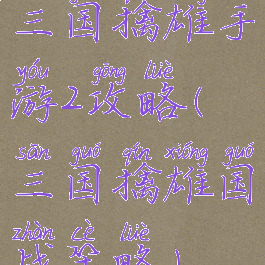 三国擒雄手
yóu gōng lüè
游2攻略(
sān guó qín xióng guó
三国擒雄国
zhàn cè lüè
战策略)